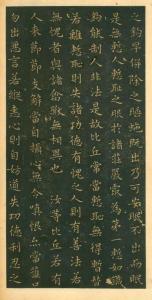 之鉤早屏除之睡蛇既出乃可安眠不出而眠
是無慙人慙恥之服於諸莊嚴最為第一慙如鐵
鉤能制人非法是故比丘常當慙恥無得暫替
若離慙恥則失諸功德有愧之人則有善法若
無愧者與諸禽獸無相異也 汝等比丘若有
人來節節支解當自攝心無令瞋恨亦當護口
勿出惡言若縱恚心則自妨道失功德利忍之